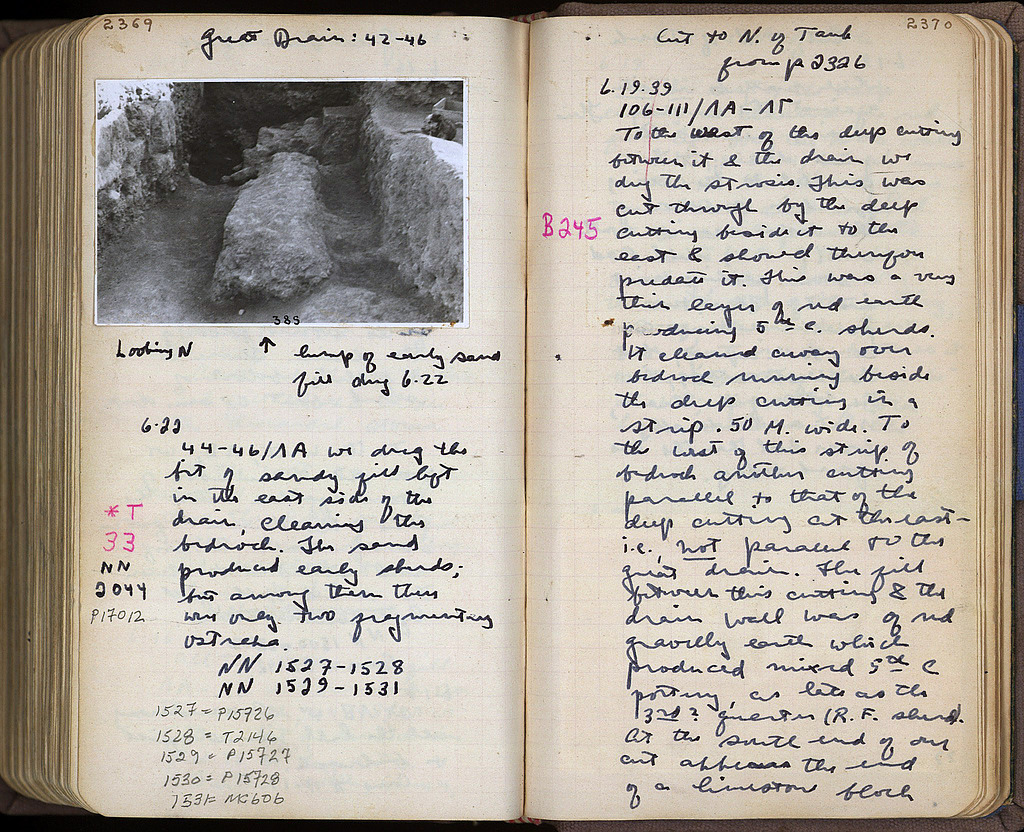 2369
Great Drain: 42-46
389
Looking N ↑ lump of early sand
fill dug 6.22
6.22
44-46/ΛA we dug the
bit of sandy fill left
in the east side of the
drain, cleaning the
bedrock. The sand
produced early sherds;
but among them there
were only two fragmentary
ostraka.
* T
33
NN
2044
P17012
NN 1527-1528
NN 1529-1531
1527 = P15726
1528 = T2146
1529 = P15727
1530 = P15728
1531 = MC606
2370
Cut to N. of Tank
from p 2326
6.19.39
106-111/ΛA-ΛΓ
To the west of the deep cutting
between it & the drain we
dug the strosis. This was
cut through by the deep
B245
cutting beside it to the
east & should therefore
predate it. This was a very
thin layer of red earth
producing 5th c. sherds.
It cleaned away over
bedrock running beside
the deep cutting in a
strip .50 M. wide. To
the west of this strip of
bedrock another cutting
parallel to that of the
deep cutting at the east -
i.e. not parallel to the
great drain. The fill
between this cutting & the
drain wall was of red
gravelly earth which
produced mixed 5th c
pottery, as late as the
3rd ? quarter (R.F. sherd).
At the south end of our
cut appears the end
of a limestone block